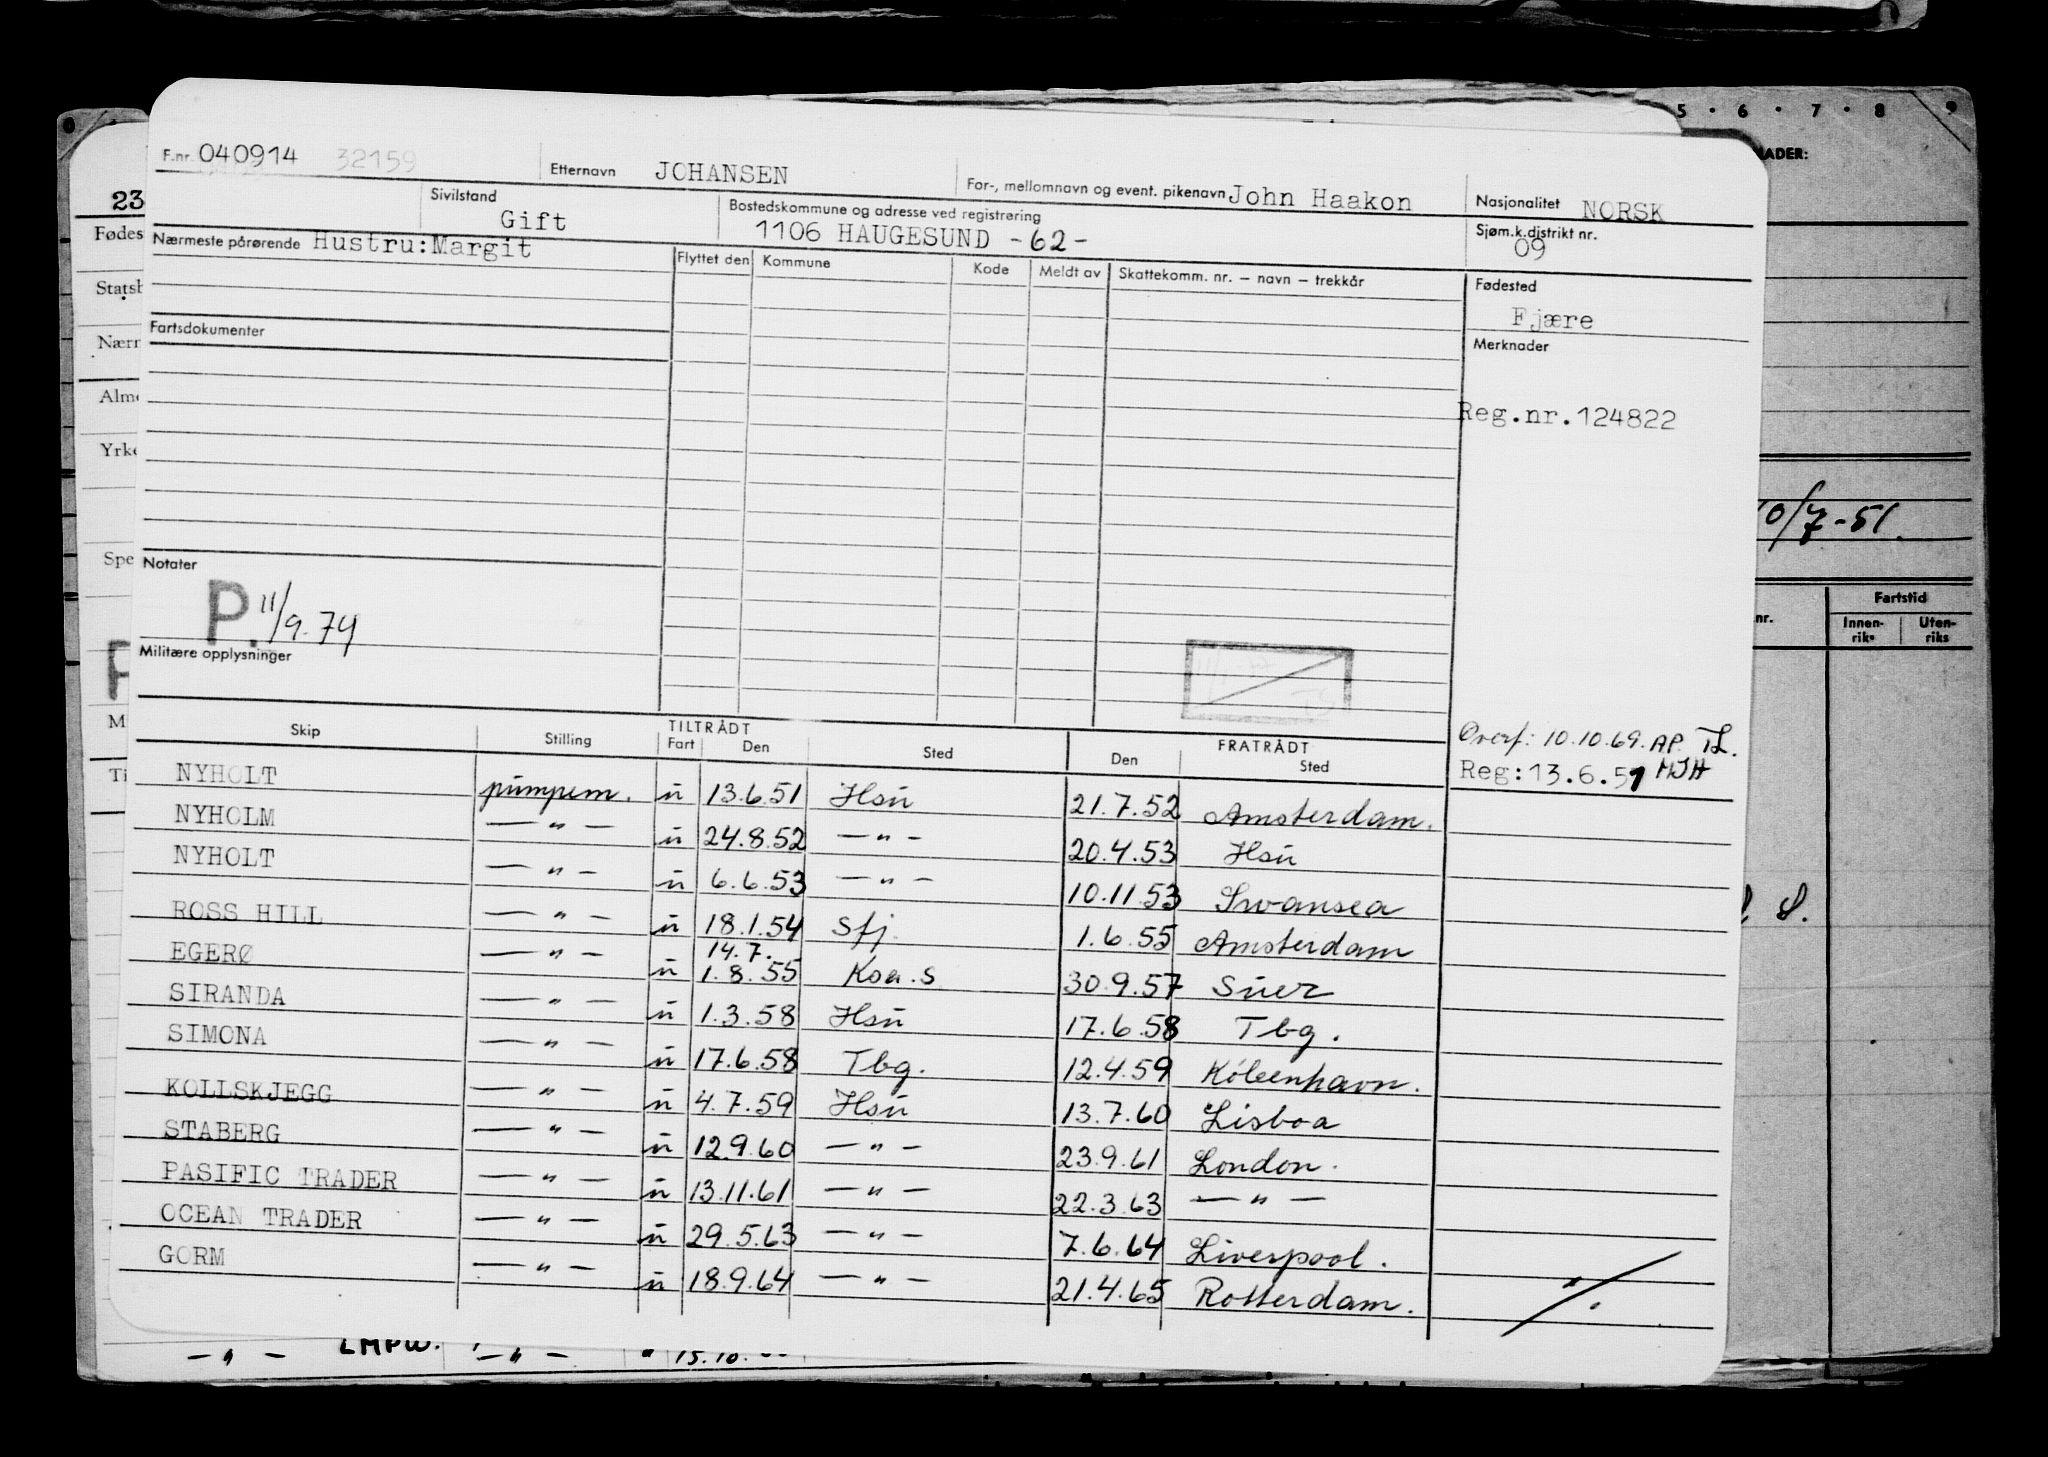 5 · 6 · 7 · 8 · 9
ADER:
F.nr. 040914 32159 Etternavn JOHANSEN For-, mellomnavn og event. pikenavn John Haakon Nasjonalitet NORSK
23 Sivilstand Gift Bostedskommune og adresse ved registrering 1106 HAUGESUND -62- Sjøm.k.distrikt nr. 09
Fødes Nærmeste pårørende Hustru:Margit Flyttet den Kommune Kode Meldt av Skattekomm. nr. – navn – trekkår Fødested
Fjære
Fartsdokumenter
Merknader
Reg.nr.124822
Nærn
Yrke
10/7-51.
Spe Notater
P. 11/9.74
Fartstid
nr. Innen-riks Uten-riks
Militære opplysninger
Overf: 10.10.69. AP. TL.
Reg:13.6.51 MJH
Skip Stilling TILTRÅDT Fart Den Sted FRATRÅDT Den Sted
NYHOLT pumpem. u 13.6.51 Hsu 21.7.52 Amsterdam.
NYHOLM —"— u 24.8.52 —"— 20.4.53 Hsu
NYHOLT —"— u 6.6.53 —"— 10.11.53 Swansea
ROSS HILL —"— u 18.1.54 Sfj. 1.6.55 Amsterdam
14.7.
EGERØ —"— u 1.8.55 Koa.S 30.9.57 Suez
SIRANDA —"— u 1.3.58 Hsu 17.6.58 Tbg.
SIMONA —"— u 17.6.58 Tbg. 12.4.59 København.
KOLLSKJEGG —"— u 4.7.59 Hsu 13.7.60 Lisboa
STABERG —"— u 12.9.60 —"— 23.9.61 London.
PASIFIC TRADER —"— u 13.11.61 —"— 22.3.63 —"—
OCEAN TRADER —"— u 29.5.63 —"— 7.6.64 Liverpool.
GORM —"— u 18.9.64 —"— 21.4.65 Rotterdam.
—"— LMPW. —"— " 15.10.